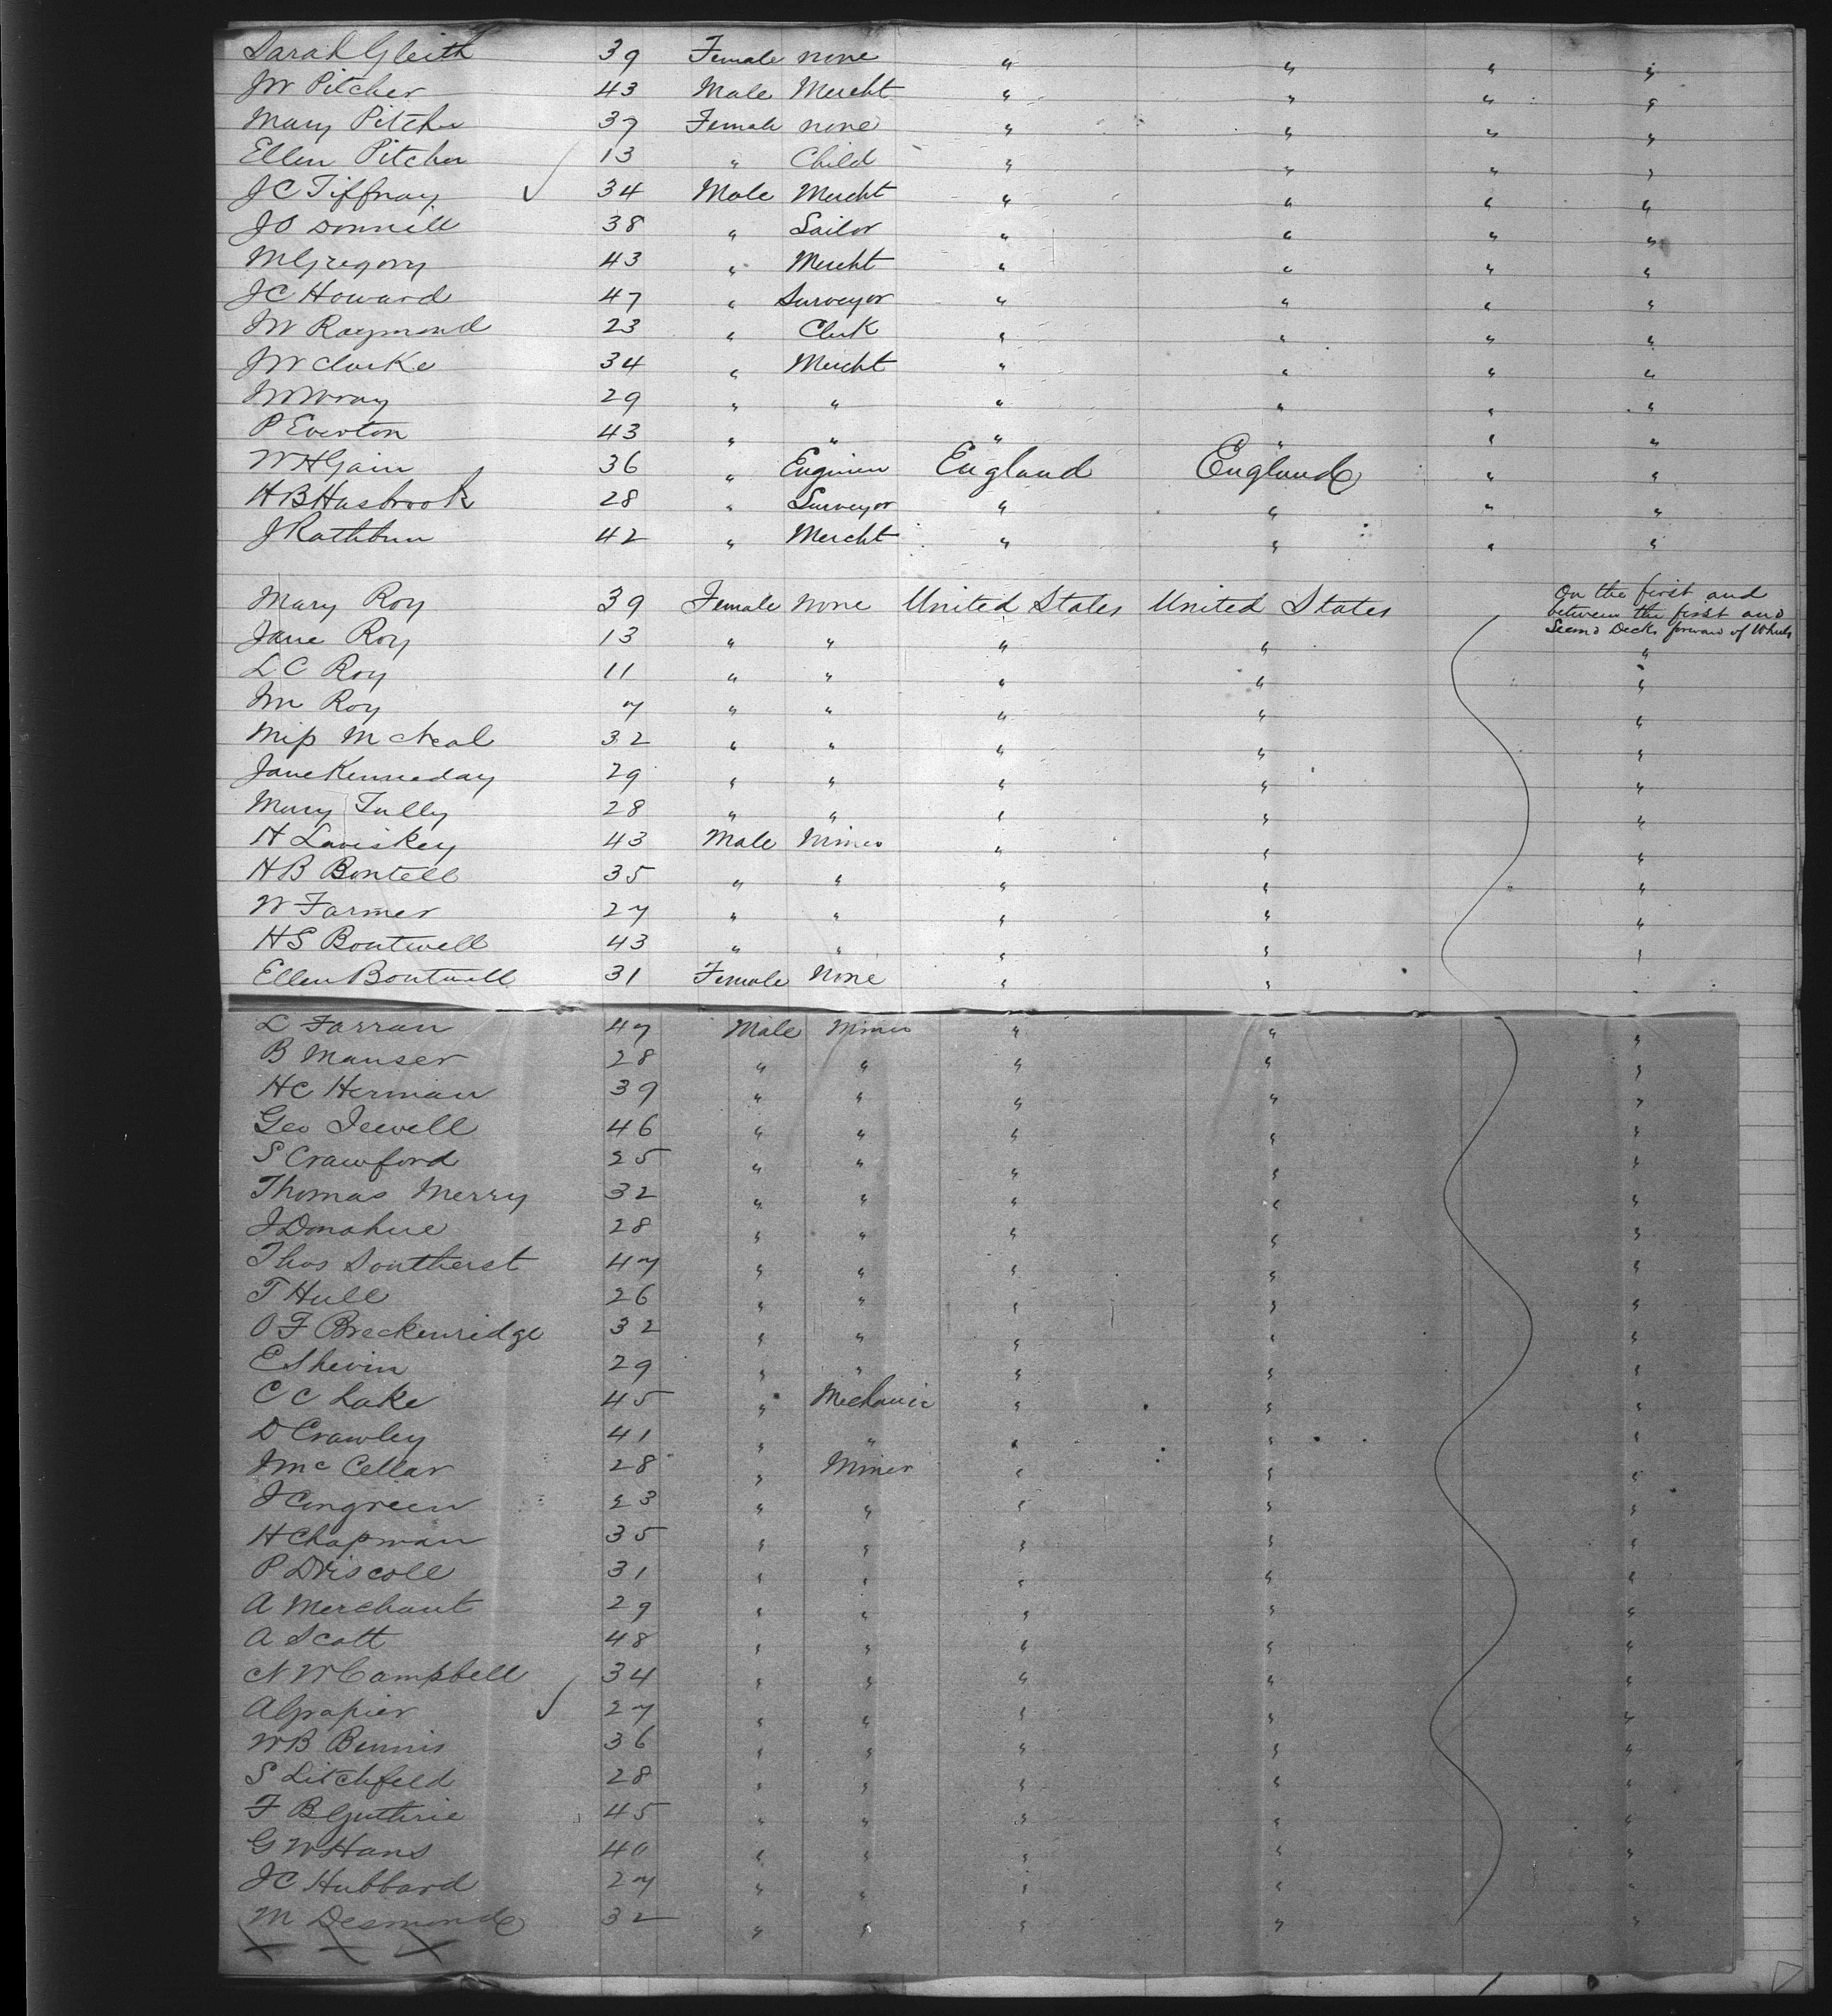 Sarah Gleith 39 Female none " " " "
JW Pitcher 43 Male Mercht " " " "
Mary Pitcher 37 Female none " " " "
Ellen Pitcher 13 " Child " " " "
JC Tiffnay 34 Male Mercht " " " "
JO Donnill 38 " Sailor " " " "
M Gregory 43 " Mercht " " " "
JC Howard 47 " Surveyor " " " "
JW Raymond 23 " Clerk " " " "
JW Clarke 34 " Mercht " " " "
W Wray 29 " " " " " "
P Everton 43 " " " " " "
WH Gain 36 " Engineer England England " "
HB Hasbrook 28 " Surveyor " " " "
J Rathbun 42 " Mercht " " " "
Mary Roy 39 Female none United States United States On the first and
between the first and
Second Decks forward of Wheels
Jane Roy 13 " " " " "
LC Roy 11 " " " " "
M Roy 7 " " " " "
Miss McNeal 32 " " " " "
Jane Kenneday 29 " " " " "
Mary Tully 28 " " " " "
H Laviskey 43 Male Miner " " "
HB Bontell 35 " " " " "
W Farmer 27 " " " " "
HS Boutwell 43 " " " " "
Ellen Boutwell 31 Female none " " "
L Farran 47 Male Miner " " "
B Manser 28 " " " " "
HC Herman 39 " " " " "
Geo Jewell 46 " " " " "
S Crawford 25 " " " " "
Thomas Merry 32 " " " " "
J Donahue 28 " " " " "
Thos Southerst 47 " " " " "
T Hull 26 " " " " "
OF Breckenridge 32 " " " " "
E Shevin 29 " " " " "
CC Lake 45 " Mechanic " " "
D Crawley 41 " " " " "
J McCellar 28 " Miner " " "
J Congreen 23 " " " " "
H Chapman 35 " " " " "
P Driscoll 31 " " " " "
A Merchant 29 " " " " "
A Scott 48 " " " " "
N W Campbell 34 " " " " "
A Grapier 27 " " " " "
WB Bennis 36 " " " " "
S Litchfeld 28 " " " " "
F B Guthrie 45 " " " " "
G W Hans 40 " " " " "
JC Hubbard 27 " " " " "
M Desmond 32 " " " " "